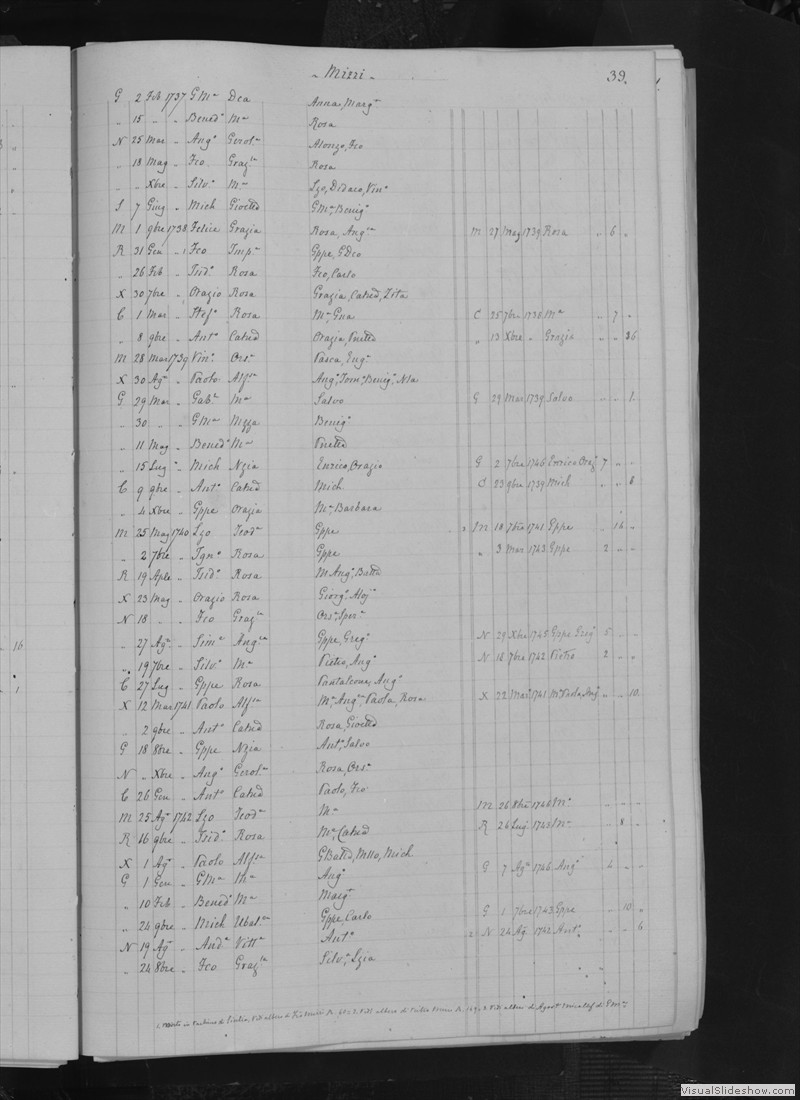 Mizzi 39.
G 2 Feb 1737 G.Ma Dea Anna, Margta
„ 15 „ „ Bened.a Ma Rosa
N 25 Mar „ Ango Gerol.ma Alonzo, Fco
„ 18 Mag „ Fco Grazla Rosa
„ „ Xbre „ Silvo Ma Lzo, Didaco, Vino
S 7 Giug „ Mich Gioetta G.Ma, Benigo
M 1 9bre 1738 Felice Grazia Rosa, Angca M 27 Mag 1739 Rosa „ 6 „
R 31 Gen „ Fco Impa Gppe, G.Dco
„ 26 Feb „ Isido Rosa Fco, Carlo
X 30 7bre „ Orazio Rosa Grazia, Catted, Zita
C 1 Mar „ Stefo Rosa Ma, Gna C 25 7bre 1738 Ma „ 7 „
„ 8 9bre „ Anto Catted Orazia, Vnetta „ 13 Xbre „ Grazia „ „ 36
M 28 Mar 1739 Vino Orsa Pasca, Euga
X 30 Ago „ Paolo Alfsa Ango, Tomo, Benigo, Nla
G 29 Mar „ Gabo Ma Salvo G 29 Mar 1739 Salvo „ „ 1
„ 30 „ „ G.Ma Nzza Benigo
„ 11 Mag „ Benedo Ma Vnetta
„ 15 Lug „ Mich Nzia Enrico, Orazio G 2 7bre 1746 Enrico Oraz 7 „ „
C 9 9bre „ Anto Catted Mich C 23 9bre 1739 Mich „ „ 8
„ 4 Xbre „ Gppe Orazia Ma Barbara
M 25 Mag 1740 Lzo Teoda Gppe M 18 7bre 1741 Gppe „ 14 „
„ 2 7bre „ Igno Rosa Gppe „ 3 Mar 1743 Gppe 2 „ „
R 19 Aple „ Isido Rosa M.Anga, Batta
X 23 Mag „ Orazio Rosa Giorgo, Aloj
N 18 „ „ Fco Grazla Orsa, Spera
„ 27 Ago „ Simo Angca Gppe, Grego N 29 Xbre 1745 Gppe Grego 5 „ „
„ 19 7bre „ Silvo Ma Pietro, Ango N 18 7bre 1742 Pietro 2 „ „
C 27 Lug „ Gppe Rosa Pantaleone, Ango
X 12 Mar 1741 Paolo Alfsa Ma Anga, Paola, Rosa X 22 Mar 1741 Ma Paola, Ang „ „ 10
„ 2 9bre „ Anto Catted Rosa, Gioetta
G 18 8bre „ Gppe Nzia Anto, Salvo
N „ Xbre „ Ango Gerol.ma Rosa, Orsa
C 26 Gen „ Anto Catted Paolo, Fco
M 25 Ago 1742 Lzo Teoda Ma M 26 8bre 1746 Ma „ „ „
R 16 9bre „ Isido Rosa Ma, Catted R 24 Lug 1743 Ma „ 8 „
X 1 Ago „ Paolo Alfsa G.Batta, Mllo, Mich
G 1 Gen „ G.Ma Ma Ango G 7 Ago 1746 Ango 4 „ „
„ 10 Feb „ Benedo Ma Margta
„ 24 9bre „ Mich Ubala Gppe, Carlo G 1 7bre 1743 Gppe „ 10 „
N 19 Ago „ Anda Vitta Anto N 24 Ago 1742 Anto „ „ 6
„ 24 8bre „ Fco Grazla Silvo, Lzia
16
1
VisualSlideshow.com